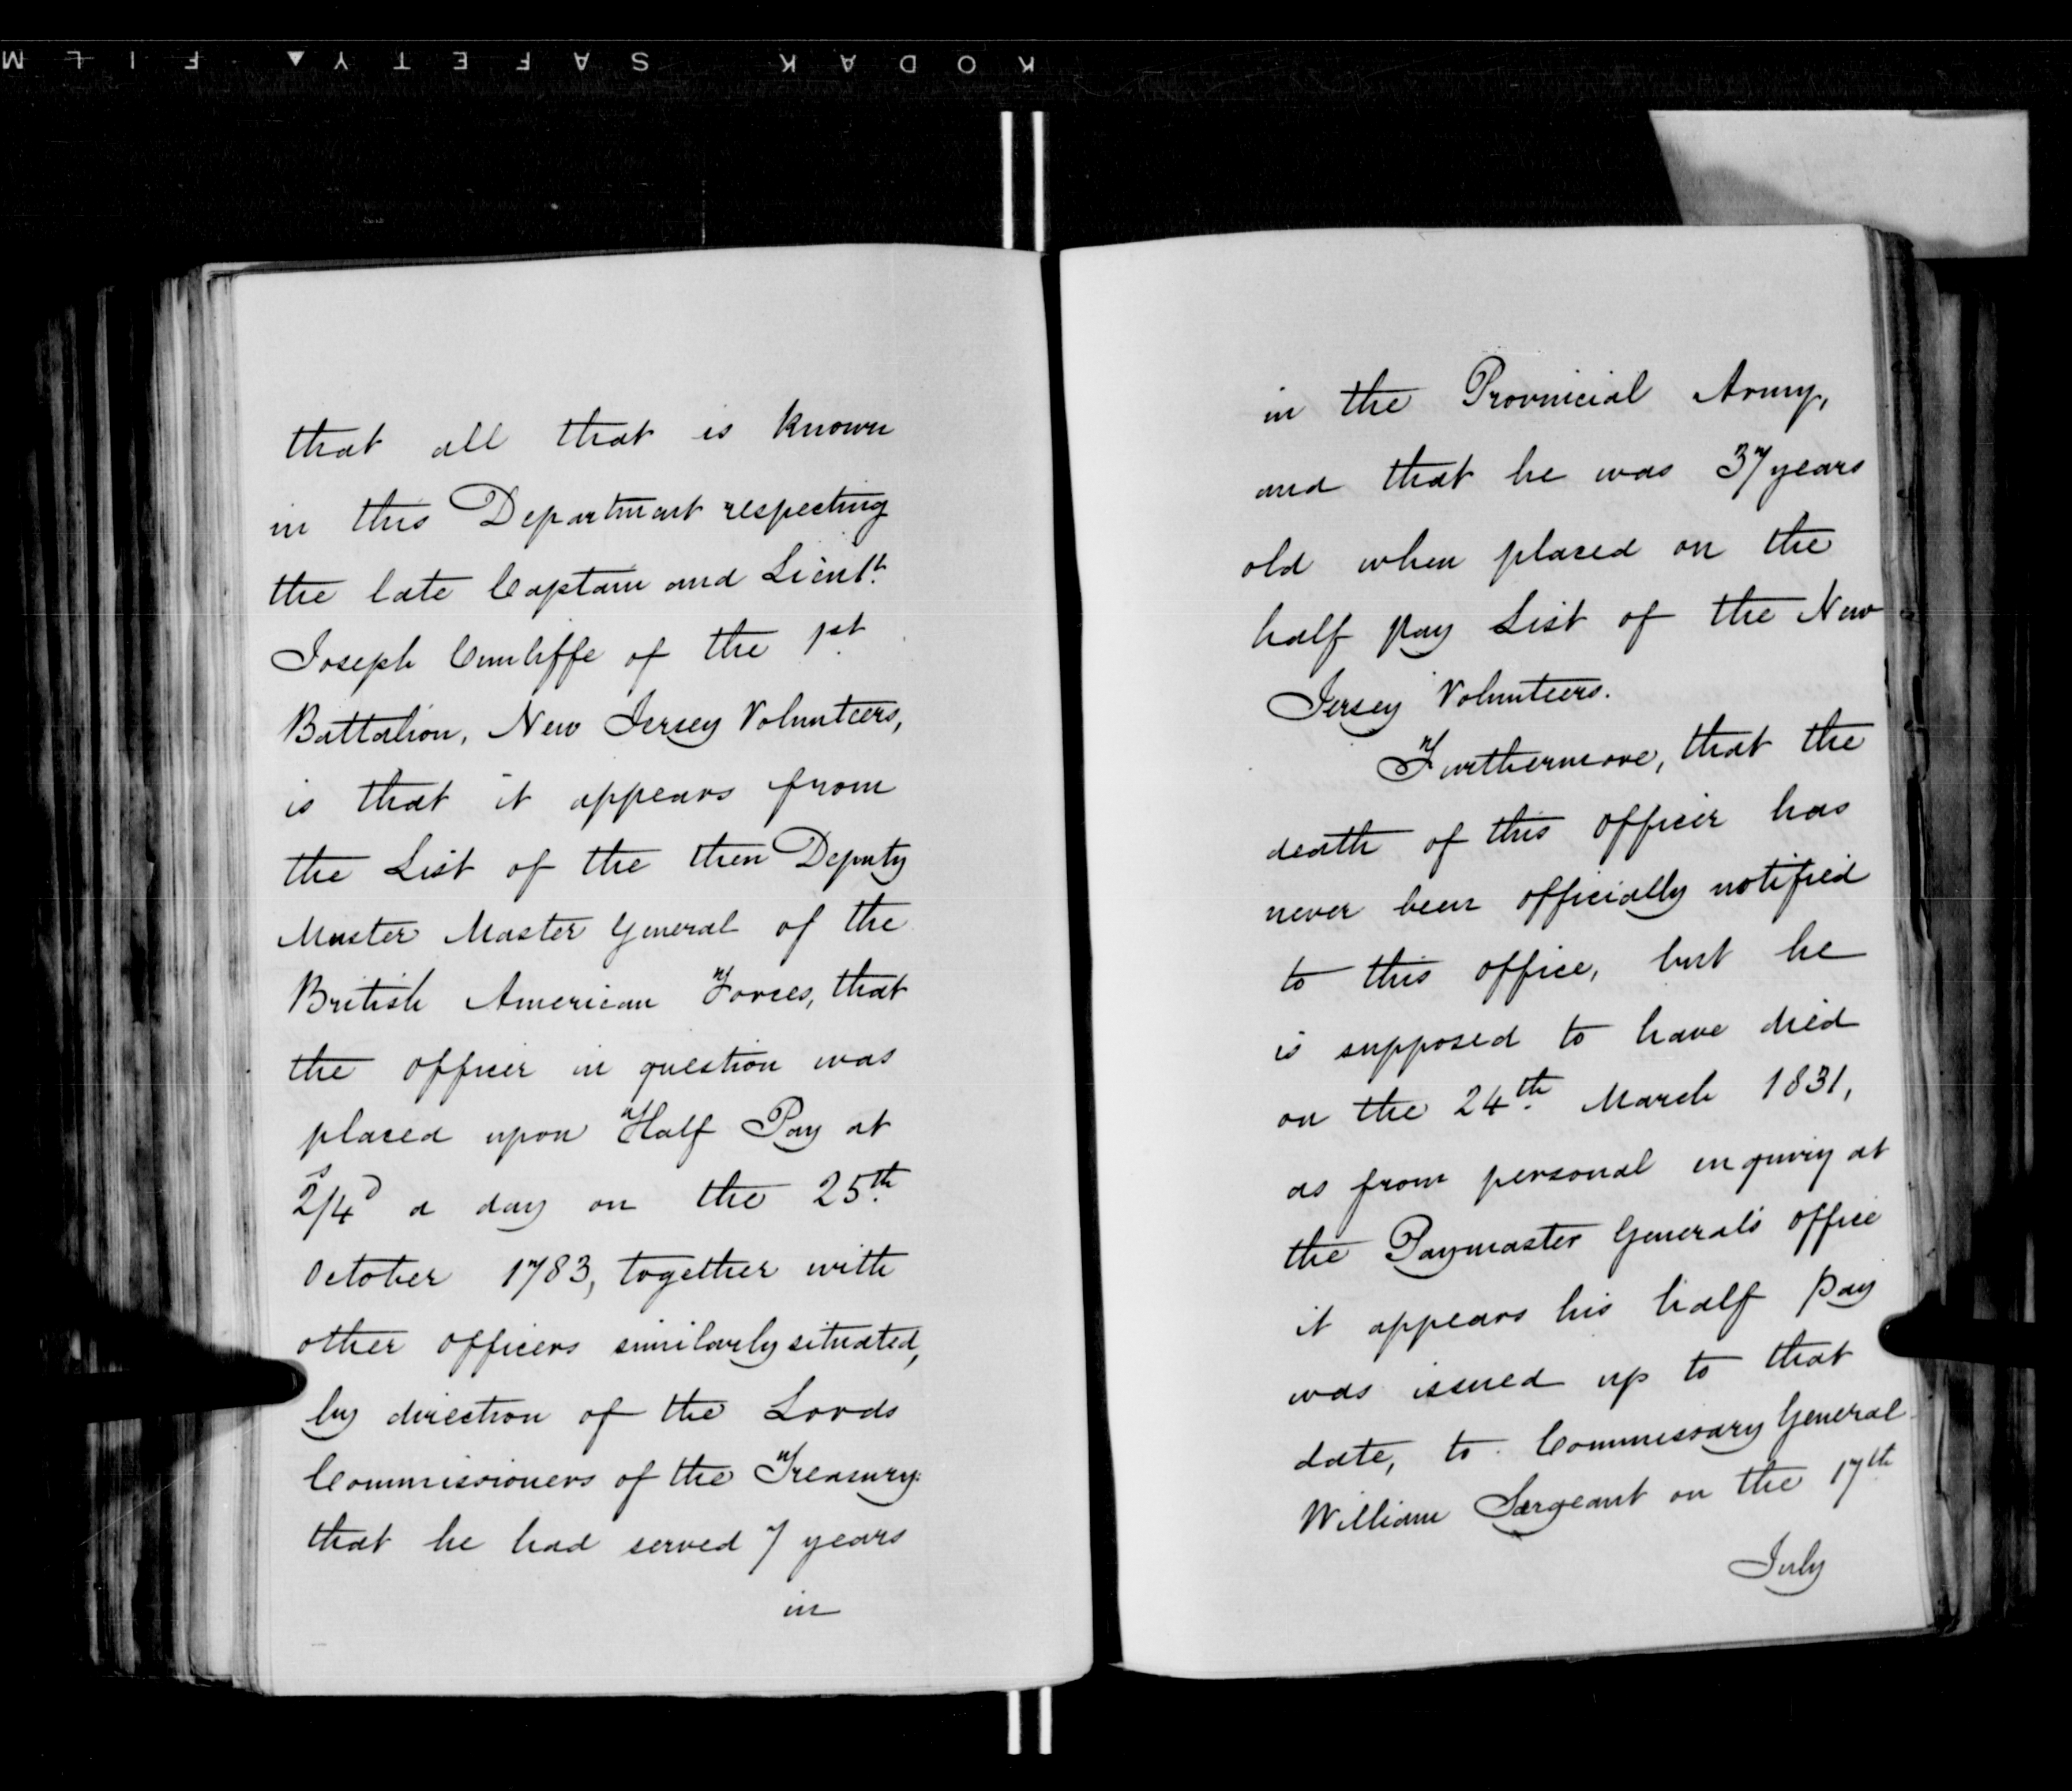 KODAK SAFETY ▲ FILM
that all that is known
in this Department respecting
the late Captain and Lieutt.
Joseph Cunliffe of the 1st
Battalion, New Jersey Volunteers,
is that it appears from
the List of the then Deputy
Muster Master General of the
British American Forces, that
the officer in question was
placed upon Half Pay at
2s/4d a day on the 25th.
October 1783, together with
other officers similarly situated,
by direction of the Lords
Commissioners of the Treasury:
that he had served 7 years
in
in the Provincial Army,
and that he was 37 years
old when placed on the
half pay List of the New
Jersey Volunteers.
Furthermore, that the
death of this officer has
never been officially notified
to this office, but he
is supposed to have died
on the 24th. March 1831,
as from personal inquiry at
the Paymaster General's office
it appears his half pay
was issued up to that
date, to Commissary General
William Sargeant on the 17th
July